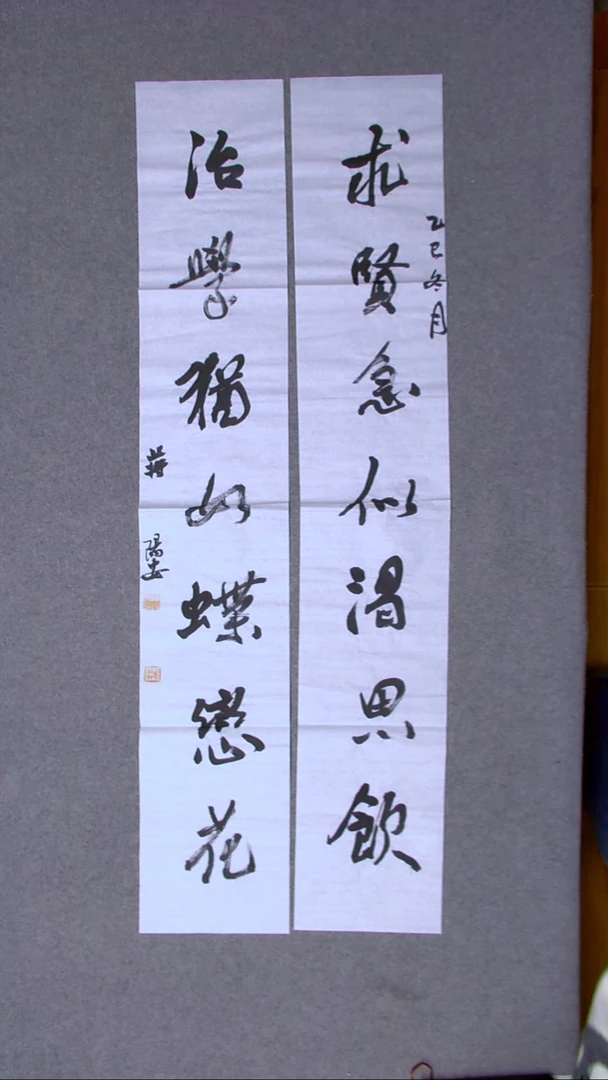 乙巳冬月
求賢急似渴思飲
治學猶如蝶戀花
蔣陽安